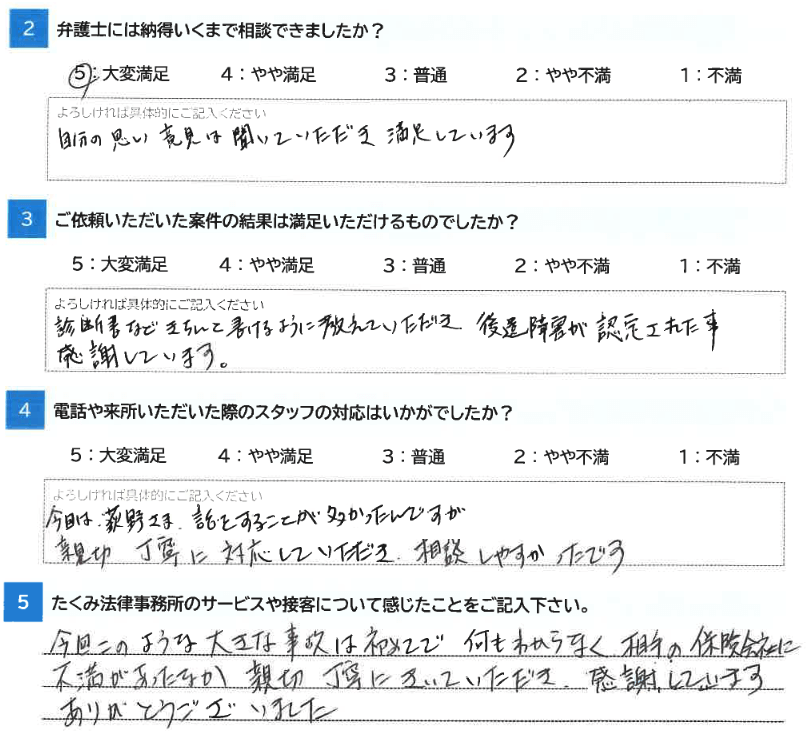 2 弁護士には納得いくまで相談できましたか？
5：大変満足 4：やや満足 3：普通 2：やや不満 1：不満
よろしければ具体的にご記入ください
自分の思い 意見は 聞いていただき 満足しています
3 ご依頼いただいた案件の結果は満足いただけるものでしたか？
5：大変満足 4：やや満足 3：普通 2：やや不満 1：不満
よろしければ具体的にご記入ください
診断書など きちんと書けるように教えていただき 後遺障害が認定された事
感謝しています。
4 電話や来所いただいた際のスタッフの対応はいかがでしたか？
5：大変満足 4：やや満足 3：普通 2：やや不満 1：不満
よろしければ具体的にご記入ください
今回は、荻野さま、話をすることが多かったんですが
親切 丁寧に 対応していただき、相談しやすかったです
5 たくみ法律事務所のサービスや接客について感じたことをご記入下さい。
今回このような大きな事故は初めてで 何もわからなく 相手の保険会社に
不満があったなか 親切 丁寧にきいていただき、感謝しています
ありがとうございました